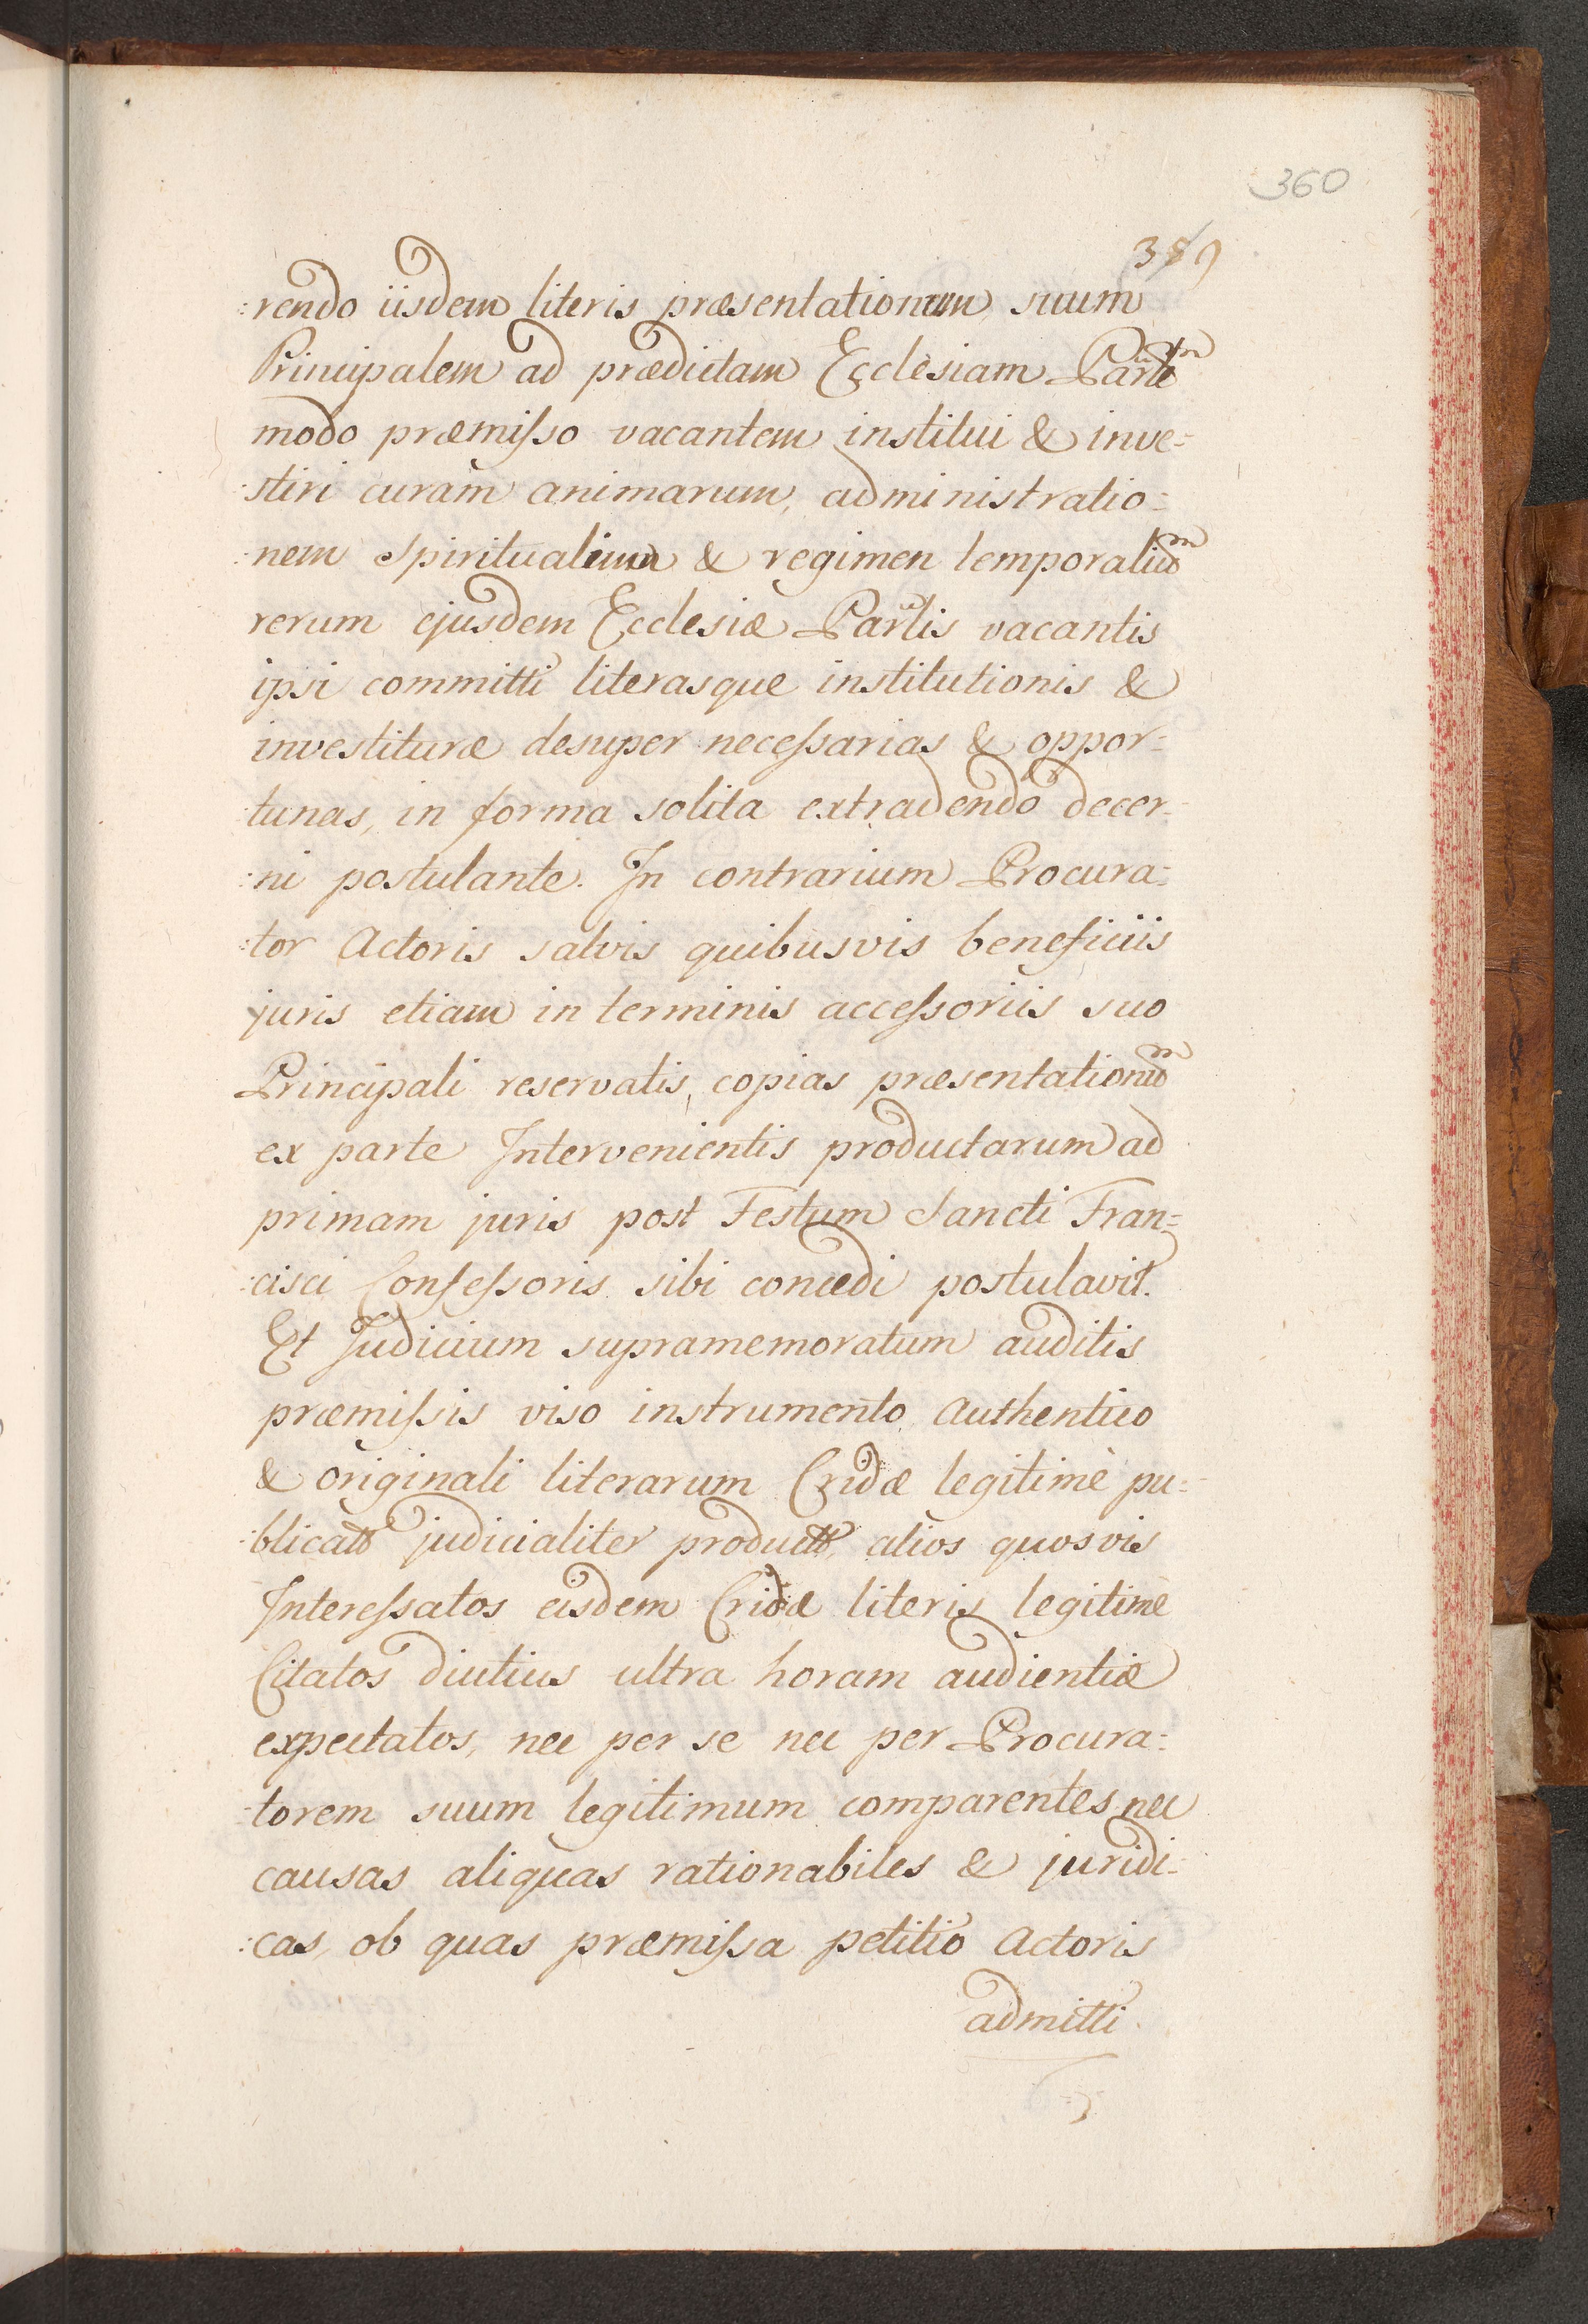 360
359
:rendo iisdem literis præsentationum suum
Principalem ad prædictam Ecclesiam Par̃lem
modo præmisso vacantem institui & inve=
:stiri curam animarum, administratio=
:nem Spiritualium & regimen temporalium
rerum ejusdem Ecclesiæ Par̃lis vacantis
ipsi committi literasque institutionis &
investituræ desuper necessarias & oppor=
:tunas, in forma solita extradendo decer=
:ni postulante. In contrarium Procura=
:tor Actoris salvis quibusvis beneficiis
juris etiam in terminis accessoriis suo
Principali reservatis, copias præsentationum
ex parte Intervenientis productarum ad
primam juris post Festum Sancti Fran=
:cisci Confessoris sibi concedi postulavit.
Et Judicium supramemoratum auditis
præmissis viso instrumento Authentico
& originali literarum Cridæ legitimè pu=
:blicato judicialiter producto, alios quosvis
Interessatos eisdem Cridæ literis legitimè
Citatos diutius ultra horam audientiæ
expectatos, nec per se nec per Procura=
:torem suum legitimum comparentes nec
causas aliquas rationabiles & juridi=
:cas, ob quas præmissa petitio Actoris
admitti